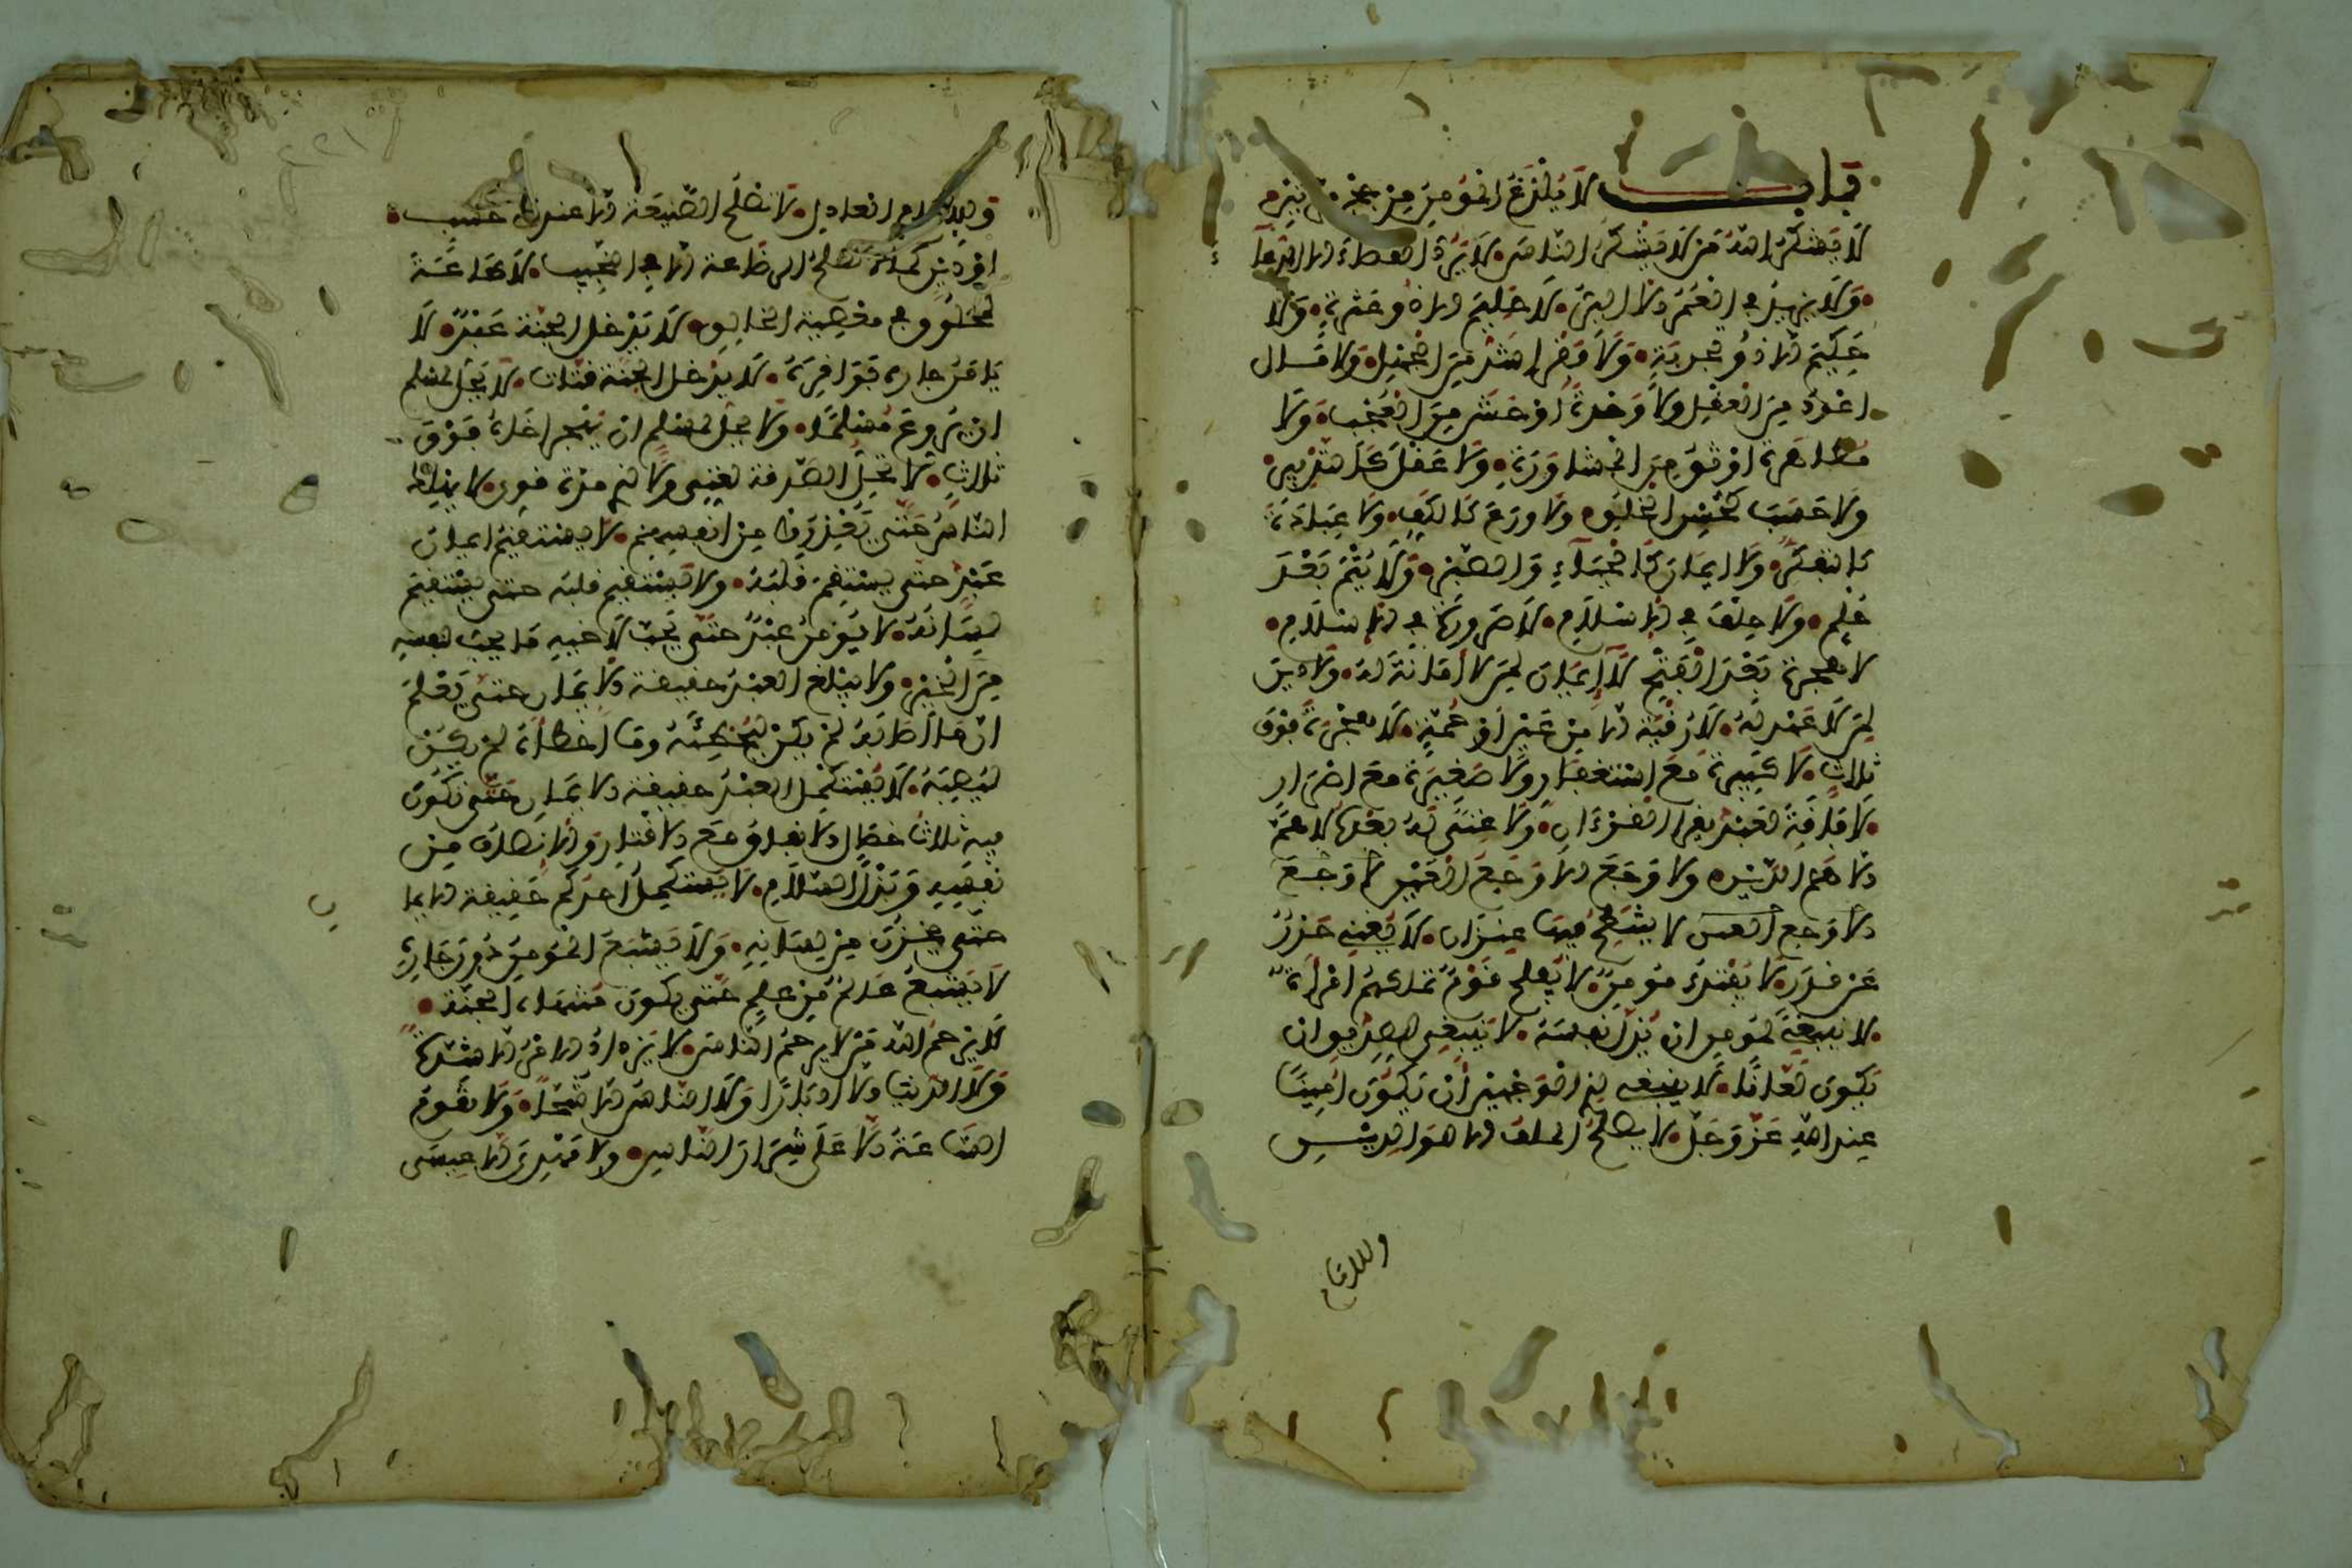 باب لَا يُلْدَغُ الْمُؤْمِنُ مِن جحر مرتين
لَا يَشْكُرُ اللهَ مَن لَا يَشْكُرُ النَّاسَ لَا يَرُدُّ القضاءَ إلا الدعآءُ
وَلَا يزيدُ في الْعُمُرِ إلا البِرُّ لَا حَلِيمَ إلا ذُو عثرةٍ وَلَا
حَكِيمَ إلا ذُو تجربَةٍ وَلَا فَقْرَ اشدُّ مِنَ الجهلِ وَلَا مَال
اعْوَدُ مِنَ العقلِ ولَا وَحْدَةَ اوحَشُ مِنَ الْعُجْبِ وَلَا
مظاهرةَ اوثقُ مِنَ المشاوَرَةِ وَلَا عَقْلَ كَالتدْبِيرِ
ولَا حَسَبَ كَحُسْنِ الخُلُقِ ولَا وَرَعَ كَالكَفِّ ولَا عِبَادَةَ
كالتفكُّرِ وَلَا ايمانَ كَالحَيَآءِ وَالصَّبْرِ وَلَا يُتْمَ بَعْدَ
حُلم وَلَا حِلْفَ في الاسلَامِ لَا صَرُورَةَ في الاسْلَامِ
لا هجرةَ بَعْدَ الْفَتْحِ لَا إيمَانَ لِمَن لا أمَانَةَ لَهُ وَلَا دِينَ
لِمَن لَا عَهْدَ لَهُ لَا رُقْيَةَ إلا مِن عَيْنٍ أو حُمَةٍ لَا هِجْرَةَ فوْقَ
ثَلاثٍ لَا كَبِيرةَ مَعَ استغفارٍ ولَا صَغِيرَةَ مع اصْرَارٍ
لَا فَاقَةَ لعَبْدٍ يقرا القُرْءَانَ ولَا غِنَى لَهُ بعْدَهُ لَا هَمَّ
إلا هَمُّ الدَّيْنِ ولَا وَجَعَ إلا وَجَعُ العَيْنِ لا وَجَعَ
إلا وَجع العين لا ينتطح فيها عَنْزَان لَا يُغني حَذَرٌ
عَن قدَرٍ لَا يَفْتِكُ مُؤمِنٌ لا يُفلح قَوْمٌ تملكهُمُ امْرَأةٌ
لا ينبغي لمُؤمِنٍ ان يُذِلَّ نفسَهُ لا ينبغي لصِدِّيقٍ ان
يكُونَ لَعَّانًا لَا ينبغي لِذِي الوَجْهَيْنِ أن يَكُونَ أمِينًا
عِندَ اللهِ عَزَّ وَجَلَّ لا يصلحُ الملق إلا للوالدين
وللامام
وللامَامِ العَادِلِ لا تصلحُ الصَّنِيعَة إلا عند ذي حَسَب
او دِينٍ كما لا تصلحُ الرياضة إلا في النجيب لا طاعَةَ
لمخلُوقٍ في معْصِيَةِ الخالِقِ لَا يَدْخل الجنةَ عَبْدٌ لَا
يَامَنُ جاره بَوَائِقَهُ لَا يدْخل الجَنَّةَ قتَّات لا يَحِلُّ لمسلم
ان يُرَوِّعَ مُسْلِمًا ولَا يحِلُّ لمسلمٍ ان يَهْجُرَ اخَاهُ فَوْقَ
ثلاثٍ لا تَحِلُّ الصَّدَقَة لغنِيٍّ ولَا لذي مِرَّةٍ قوِيٍّ لا يَهْلِكُ
النَّاسُ حَتَّى يُعْذِرُوا مِن أنفسِهِمْ لا يستقيمُ ايمانُ
عَبْدٍ حتى يستقِيمَ قلبُهُ ولَا يَسْتقيم قلبُه حتى يستقيمَ
لِسَانُهُ لا يُؤمِنُ عَبْدٌ حتَّى يُحِبَّ لأخيهِ مَا يحبّ لنفسِهِ
مِنَ الخَيْرِ ولَا يَبْلُغ العبْدُ حقيقة الإيمان حتى يَعْلَمَ
أنَّ مَا أصَابَهُ لمْ يَكُن لِيُخْطِئَهُ ومَا أخطأهُ لم يكُن
لِيُصِيبَهُ لَا يَسْتكْمِل العَبْدُ حقيقة الإيمانِ حَتَّى تكُونَ
فيه ثَلَاثُ خصَالٍ الانفاق مَعَ الاقْتار والانصافُ مِن
نَفْسِهِ وَبَذْلُ السَّلَامِ لَا يَسْتَكْمِلُ أحدكم حَقِيقَة الايما
حَتَّى يخْزُنَ مِن لِسَانِهِ وَلَا يَشْبَعَ المُؤمِنُ دُونَ جَارِهِ
لا يَشْبعُ عَالِمٌ مِن عِلمٍ حَتَّى يكُونَ مُنْتَهَاهُ الجَنَّةَ
لَا يَرْحَمُ اللهُ مَن لا يرحَمُ النَّاسَ لا يَزْدَادُ الأمْرُ إلا شِدَّةً
وَلَا الدُّنْيَا إلا إدْبَارًا وَلَا النَّاسُ إلا شُحًّا وَلَا تقُومُ
السَّاعَةُ إلا عَلَى شِرَارِ النَّاسِ ولا مَهْدِيَّ إلا عِيسَى